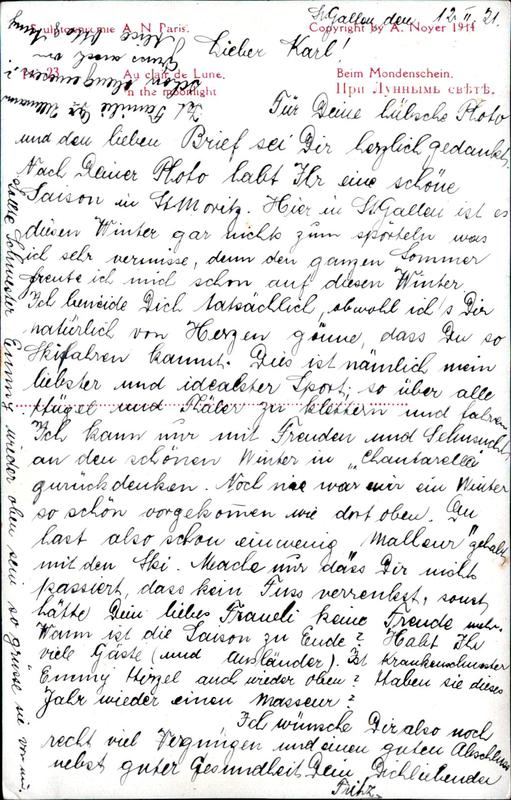 Sculptochromie A. N Paris.
Copyright by A. Noyer 1914
23
Au clair de Lune.
In the moonlight
Beim Mondenschein.
При Луннымъ свѣтѣ.
St. Gallen den 12. II. 21.
Lieber Karl!
Für Deine hübsche Photo
und den lieben Brief sei Dir herzlich gedankt.
Nach Deiner Photo habt Ihr eine schöne
Saison in St. Moritz. Hier in St. Gallen ist es
diesen Winter gar nichts zum sporteln was
ich sehr vermisse, denn den ganzen Sommer
freute ich mich schon auf diesen Winter
Ich beneide Dich tatsächlich, obwohl ich's Dir
natürlich von Herzen gönne, dass Du so
Skifahren kannst. Dies ist nämlich mein
liebster und idealster Sport, so über alle
Hügel und Täler zu klettern und fahren.
Ich kann nur mit Freuden und Sehnsucht
an den schönen Winter in „Chantarella"
zurückdenken. Noch nie war mir ein Winter
so schön vorgekommen wie dort oben. Du
hast also schon einwenig „Malleur" gehabt
mit den Ski. Mache nur dass Dir nichts
passiert, dass kein Fuss verrenkst, sonst
hätte Dein liebes Fraueli keine Freude mehr.
Wann ist die Saison zu Ende? Habt Ihr
viele Gäste (und Ausländer). Ist Krankenschwester
Emmy Hirzel auch wieder oben? Haben sie dieses
Jahr wieder einen Masseur?
Ich wünsche Dir also noch
recht viel Vergnügen und einen guten Abschluss
nebst guter Gesundheit Dein Dichliebender
Fritz.
Sollte Schwester Emmy wieder oben sein so grüsse sie von mir
Ist Familie
schon